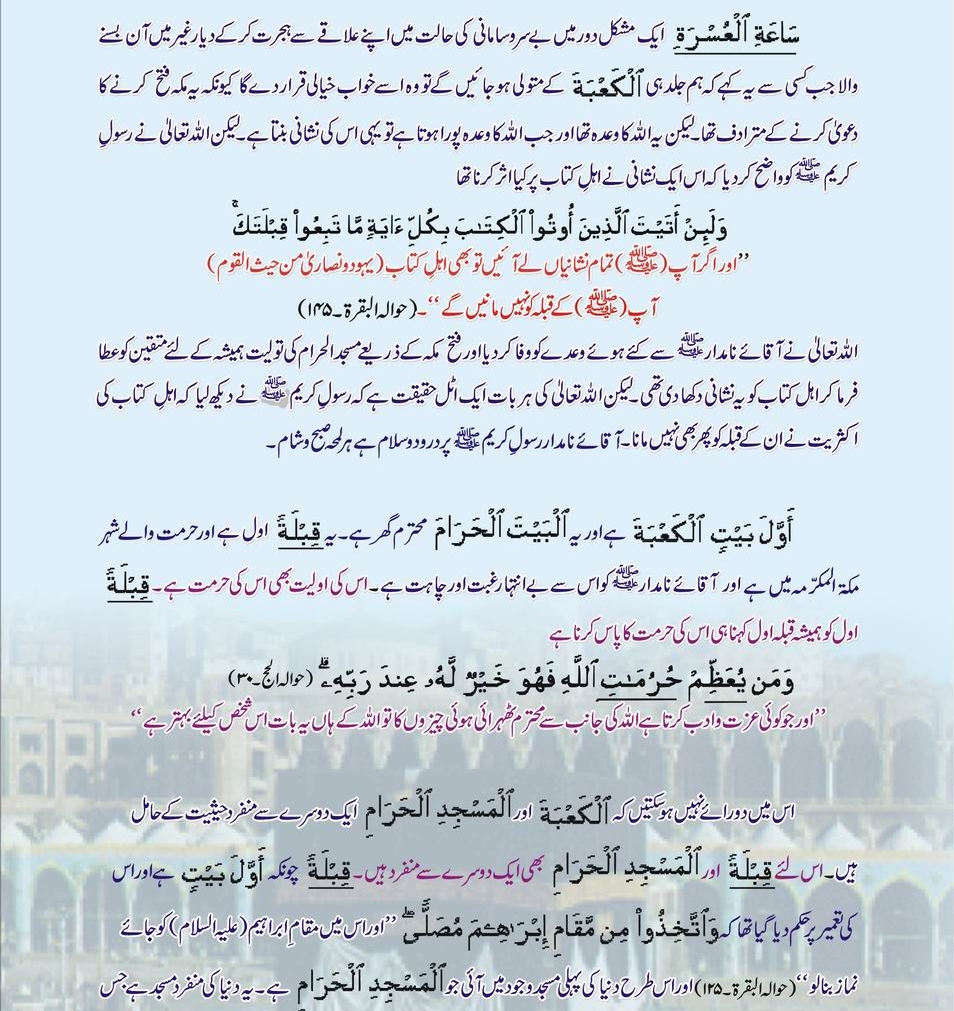 سَاعَةِ ٱلْعُسْرَةِ ایک مشکل دور میں بے سروسامانی کی حالت میں اپنے علاقے سے ہجرت کر کے دیارِ غیر میں آن بسنے
والا جب کسی سے یہ کہے کہ ہم جلد ہی ٱلْكَعْبَةَ کے متولی ہو جائیں گے تو وہ اسے خواب خیالی قرار دے گا کیونکہ یہ مکہ فتح کرنے کا
دعویٰ کرنے کے مترادف تھا۔ لیکن یہ اللہ کا وعدہ تھا اور جب اللہ کا وعدہ پورا ہوتا ہے تو یہی اس کی نشانی بنتا ہے۔ لیکن اللہ تعالیٰ نے رسولِ
کریم ﷺ کو واضح کر دیا کہ اس ایک نشانی نے اہلِ کتاب پر کیا اثر کرنا تھا
وَلَئِنْ أَتَيْتَ ٱلَّذِينَ أُوتُوا۟ ٱلْكِتَـٰبَ بِكُلِّ ءَايَةٍ مَّا تَبِعُوا۟ قِبْلَتَكَ ۚ
”اور اگر آپ (ﷺ) تمام نشانیاں لے آئیں تو بھی اہلِ کتاب (یہود و نصاریٰ من حیث القوم)
آپ (ﷺ) کے قبلہ کو نہیں مانیں گے“۔ (حوالہ البقرة۔۱۴۵)
اللہ تعالیٰ نے آقائے نامدار ﷺ سے کئے ہوئے وعدے کو وفا کر دیا اور فتح مکہ کے ذریعے مسجد الحرام کی تولیت ہمیشہ کے لئے متقین کو عطا
فرما کر اہل کتاب کو یہ نشانی دکھا دی تھی۔ لیکن اللہ تعالیٰ کی ہر بات ایک اٹل حقیقت ہے کہ رسولِ کریم ﷺ نے دیکھ لیا کہ اہلِ کتاب کی
اکثریت نے ان کے قبلہ کو پھر بھی نہیں مانا۔ آقائے نامدار رسولِ کریم ﷺ پر درود و سلام ہے ہر لمحہ صبح و شام۔
أَوَّلَ بَيْتٍ ٱلْكَعْبَةَ ہے اور یہ ٱلْبَيْتَ ٱلْحَرَامَ محترم گھر ہے۔ یہ قِبْلَةً اول ہے اور حرمت والے شہر
مکۃ المکرّمہ میں ہے اور آقائے نامدار ﷺ کو اس سے بے انتہا رغبت اور چاہت ہے۔ اس کی اولیت بھی اس کی حرمت ہے۔ قِبْلَةً
اول کو ہمیشہ قبلہ اول کہنا ہی اس کی حرمت کا پاس کرنا ہے
وَمَن يُعَظِّمْ حُرُمَـٰتِ ٱللَّهِ فَهُوَ خَيْرٌ لَّهُۥ عِندَ رَبِّهِۦ ۗ (حوالہ الحج۔۳۰)
”اور جو کوئی عزت و ادب کرتا ہے اللہ کی جانب سے محترم ٹھہرائی ہوئی چیزوں کا تو اللہ کے ہاں یہ بات اس شخص کیلئے بہتر ہے“
اس میں دو رائے نہیں ہو سکتیں کہ ٱلْكَعْبَةَ اور ٱلْمَسْجِدِ ٱلْحَرَامِ ایک دوسرے سے منفرد حیثیت کے حامل
ہیں۔ اس لئے قِبْلَةً اور ٱلْمَسْجِدِ ٱلْحَرَامِ بھی ایک دوسرے سے منفرد ہیں۔ قِبْلَةً چونکہ أَوَّلَ بَيْتٍ ہے اور اس
کی تعمیر پر حکم دیا گیا تھا کہ وَٱتَّخِذُوا۟ مِن مَّقَامِ إِبْرَٰهِـۧمَ مُصَلًّى ۖ ”اور اس میں مقامِ ابراہیم (علیہ السلام) کو جائے
نماز بنا لو“ (حوالہ البقرة۔۱۲۵) اور اس طرح دنیا کی پہلی مسجد وجود میں آئی جو ٱلْمَسْجِدِ ٱلْحَرَامِ ہے۔ یہ دنیا کی منفرد مسجد ہے جس